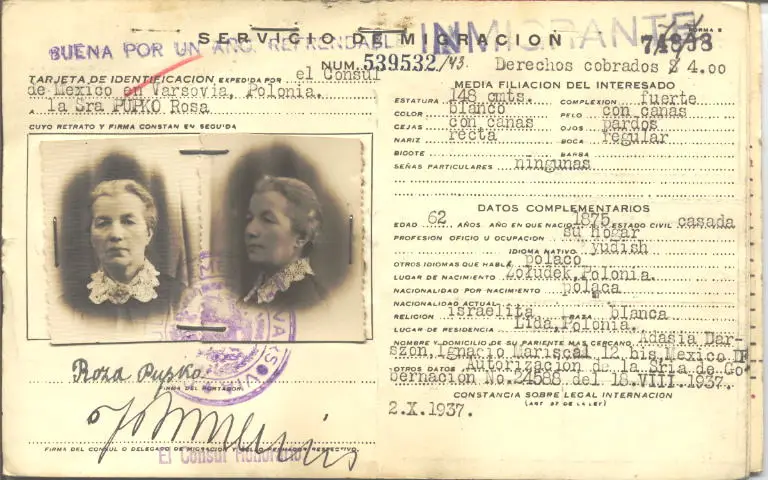 SERVICIO DE MIGRACION
INMIGRANTE
FORMA 5
BUENA POR UN AÑO, REFRENDABLE
74838
NUM. 539532/43. Derechos cobrados $ 4.00
TARJETA DE IDENTIFICACION EXPEDIDA POR el Consul
de Mexico en Varsovia, Polonia.
A la Sra PUPKO Rosa
CUYO RETRATO Y FIRMA CONSTAN EN SEGUIDA
Roza Pupko
FIRMA DEL PORTADOR.
FIRMA DEL CONSUL O DELEGADO DE MIGRACION Y SELLO FECHADOR RESPECTIVO.
El Consul Honorario
MEDIA FILIACION DEL INTERESADO
ESTATURA 148 cmts. COMPLEXION fuerte
COLOR blanco PELO con canas
CEJAS con canas OJOS pardos
NARIZ recta BOCA regular
BIGOTE BARBA
SEÑAS PARTICULARES ningunas
DATOS COMPLEMENTARIOS
EDAD 62 AÑOS. AÑO EN QUE NACIO 1875 ESTADO CIVIL casada
PROFESION OFICIO U OCUPACION su hogar
IDIOMA NATIVO yudish
OTROS IDIOMAS QUE HABLA polaco
LUGAR DE NACIMIENTO Zoludek, Polonia.
NACIONALIDAD POR NACIMIENTO polaca
NACIONALIDAD ACTUAL "
RELIGION israelita RAZA blanca
LUGAR DE RESIDENCIA Lida, Polonia.
NOMBRE Y DOMICILIO DE SU PARIENTE MAS CERCANO Adasia Dar-
szon, Ignacio Mariscal 12 bis, Mexico DF
OTROS DATOS Autorización de la Sria de Go-
bernación No. 24588 del 18.VIII.1937.
CONSTANCIA SOBRE LEGAL INTERNACION
(ART 57 DE LA LEY)
2.X.1937.